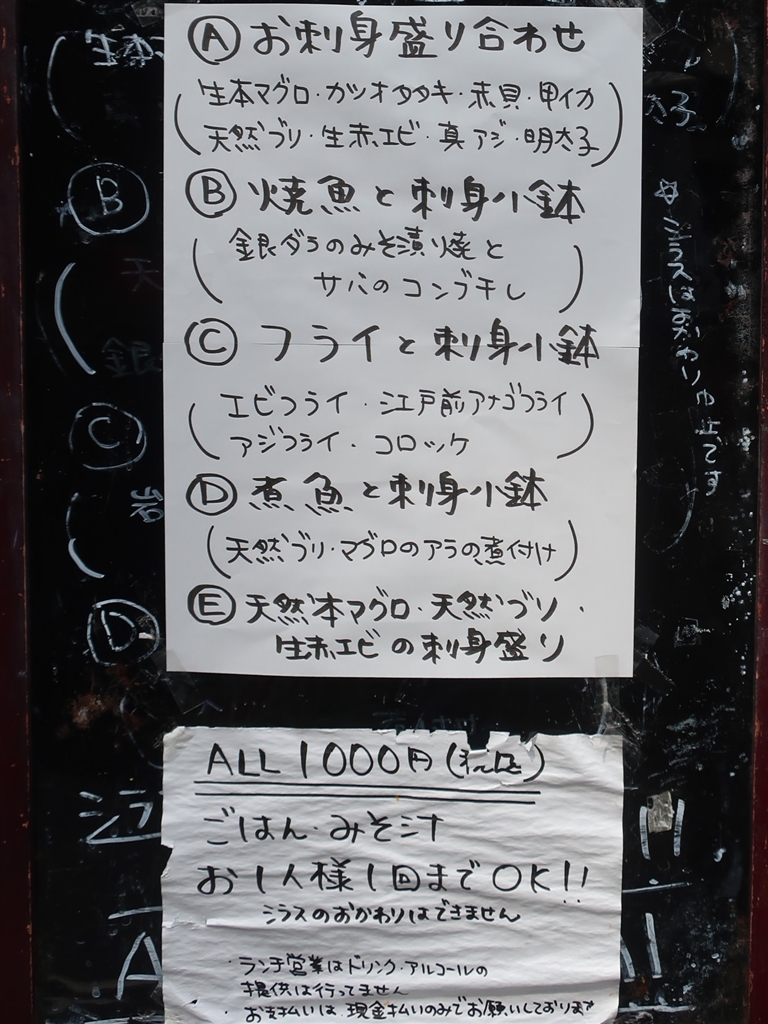 Ⓐ お刺身盛り合わせ
(生本マグロ・カツオタタキ・赤貝・甲イカ
天然ブリ・生赤エビ・真アジ・明太子)
Ⓑ 焼魚と刺身小鉢
(銀ダラのみそ漬焼と
サバのコンブ干し)
Ⓒ フライと刺身小鉢
(エビフライ・江戸前アナゴフライ
アジフライ・コロッケ)
Ⓓ 煮魚と刺身小鉢
(天然ブリ・マグロのアラの煮付け)
Ⓔ 天然本マグロ・天然ブリ・
生赤エビの刺身盛り
ALL 1000円(税込)
ごはん・みそ汁
お1人様1回までOK!!
シラスのおかわりはできません
・ランチ営業はドリンク・アルコールの
提供は行ってません
・お支払いは、現金払いのみでお願いしております
生本マ
太子
Ⓑ
天
銀
Ⓒ
岩
Ⓓ
シラ
A
!!
☆シラスは変わり中止です